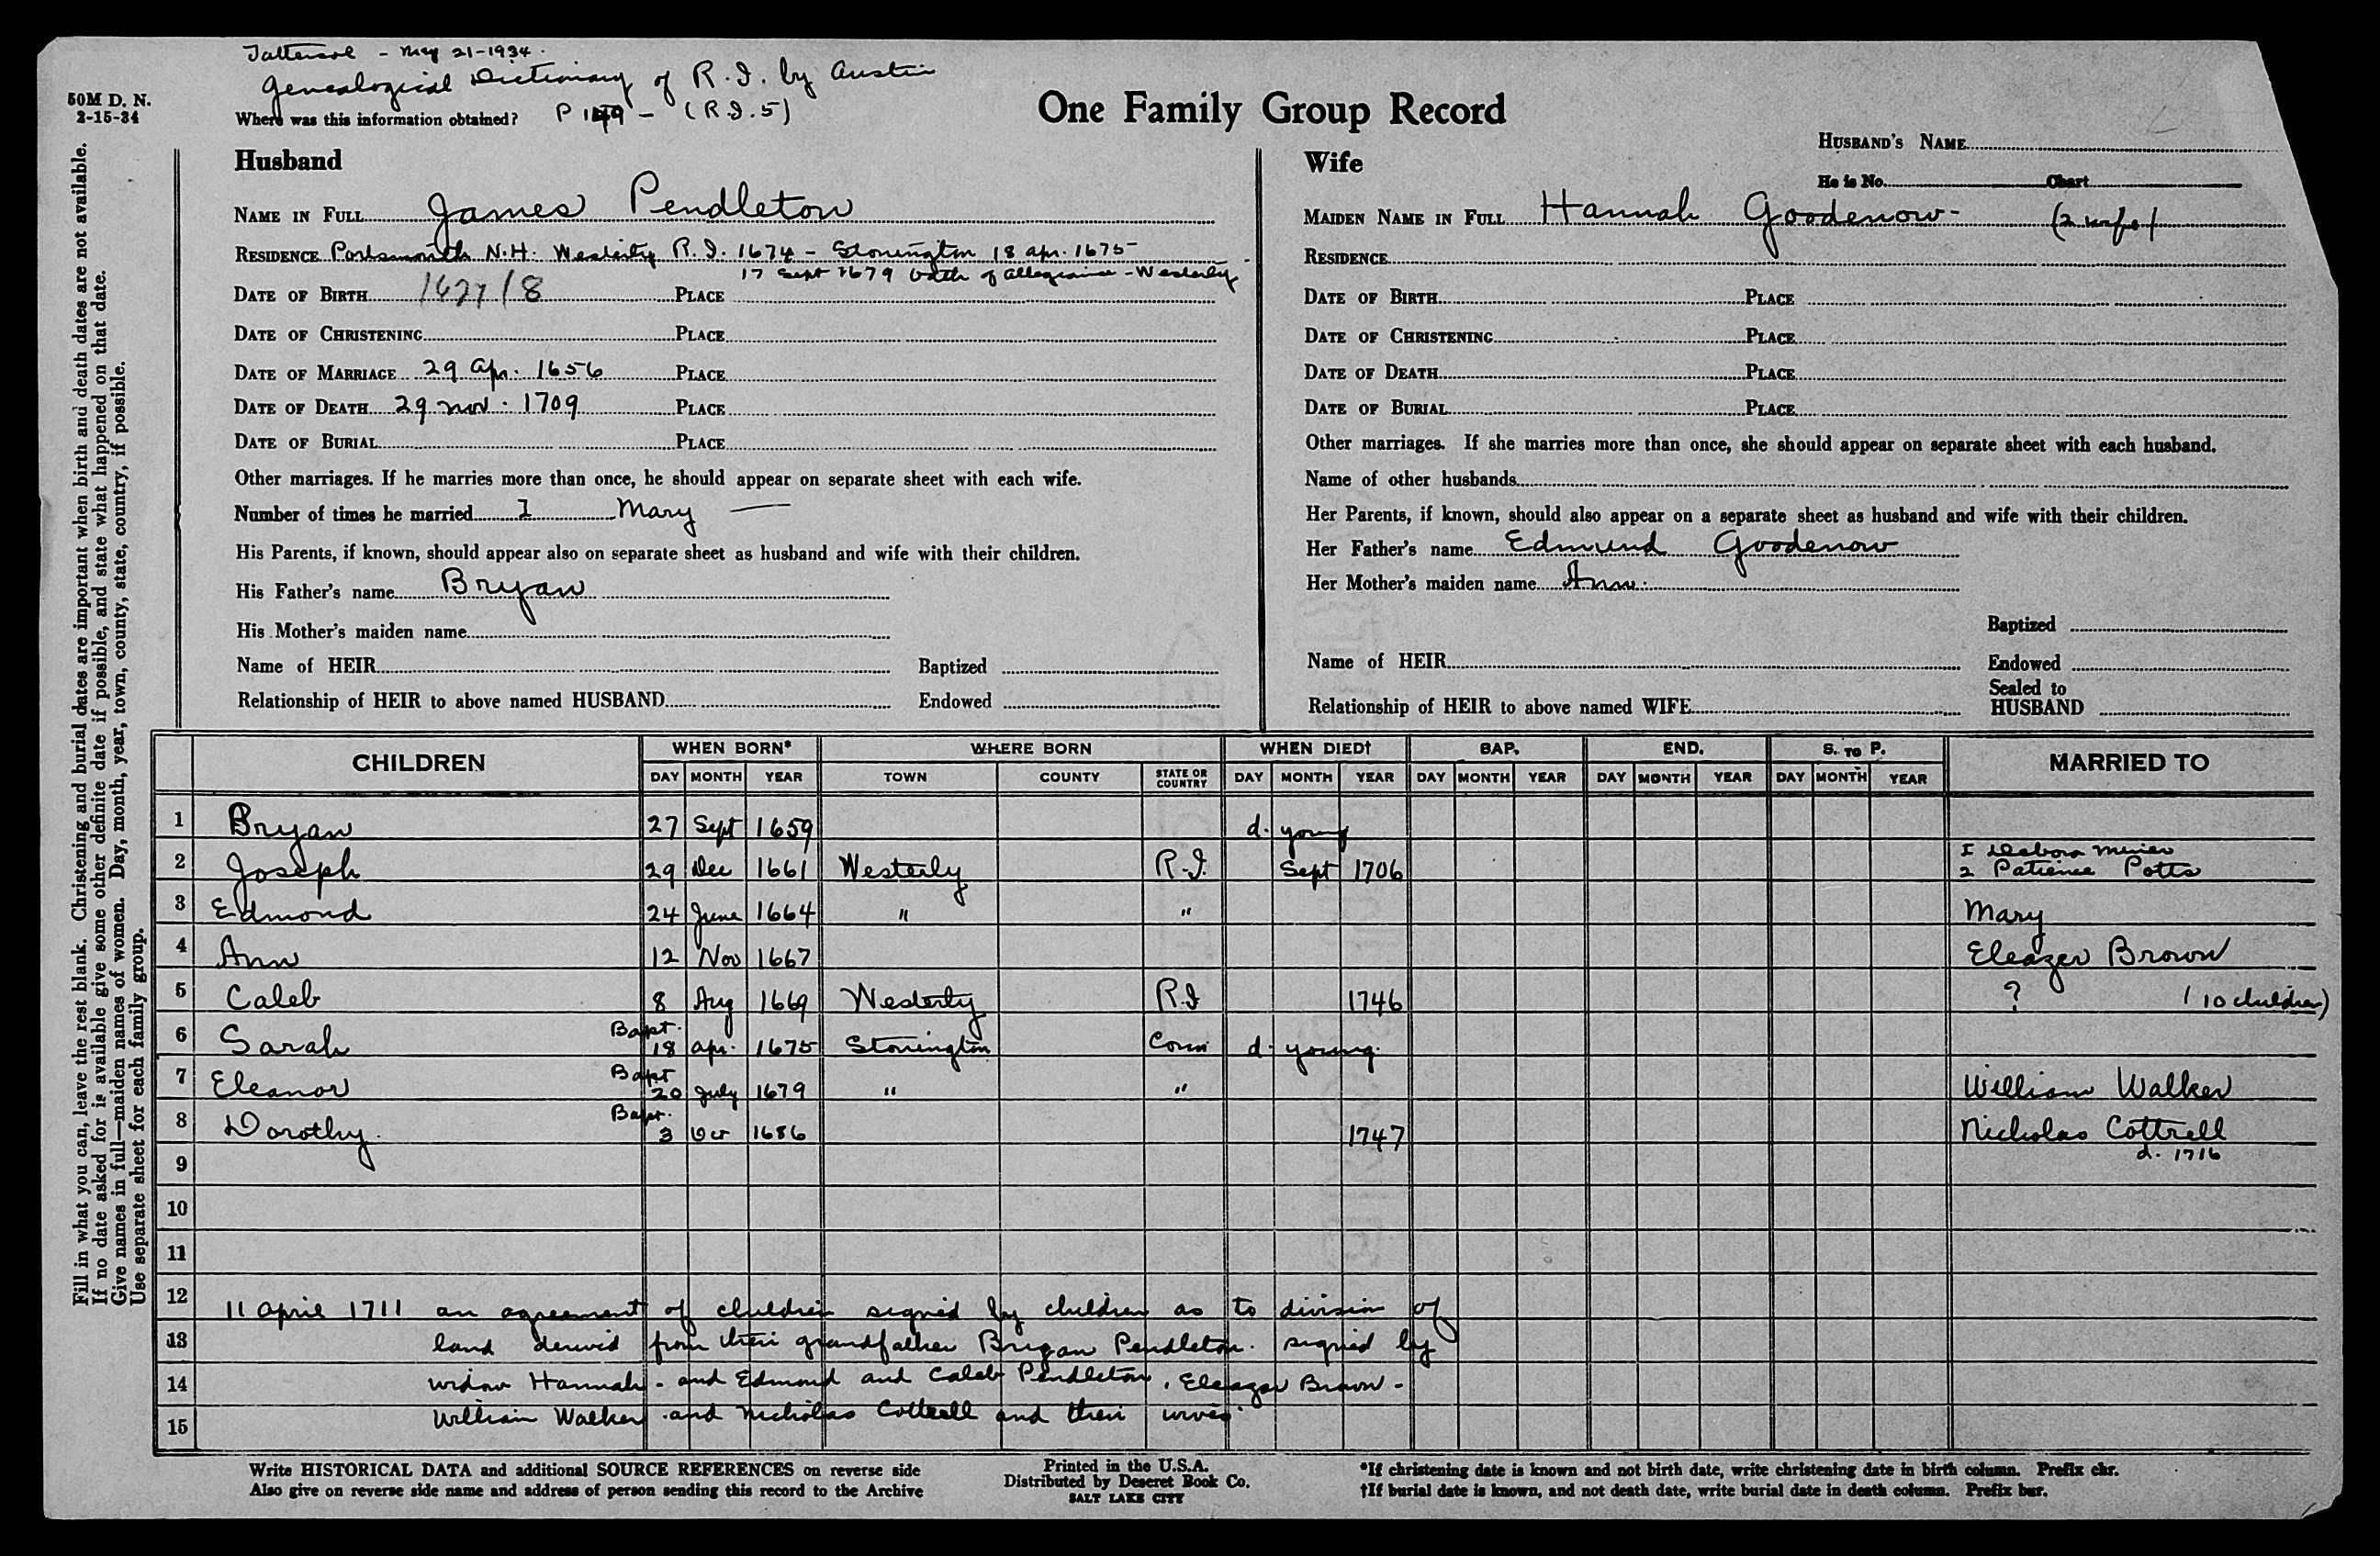 May 21-1934.
Genealogical Dictionary of R.I. by Austin
50M D. N.
2-15-34
Where was this information obtained? P 149 - (R.I. 5)
One Family Group Record
HUSBAND'S NAME
He is No. Chart
Husband
NAME IN FULL James Pendleton
RESIDENCE Portsmouth N.H. Westerly R.I. 1674 - Stonington 18 apr. 1675
17 Sept 1679 Oath of allegiance - Westerly
DATE OF BIRTH 1627/8 PLACE
DATE OF CHRISTENING PLACE
DATE OF MARRIAGE 29 Apr. 1656 PLACE
DATE OF DEATH 29 nov. 1709 PLACE
DATE OF BURIAL PLACE
Other marriages. If he marries more than once, he should appear on separate sheet with each wife.
Number of times he married I Mary —
His Parents, if known, should appear also on separate sheet as husband and wife with their children.
His Father's name Bryan
His Mother's maiden name
Name of HEIR Baptized
Relationship of HEIR to above named HUSBAND Endowed
Wife
MAIDEN NAME IN FULL Hannah Goodenow - (2 wife)
RESIDENCE
DATE OF BIRTH PLACE
DATE OF CHRISTENING PLACE
DATE OF DEATH PLACE
DATE OF BURIAL PLACE
Other marriages. If she marries more than once, she should appear on separate sheet with each husband.
Name of other husbands
Her Parents, if known, should also appear on a separate sheet as husband and wife with their children.
Her Father's name Edmund Goodenow
Her Mother's maiden name Ann
Baptized
Name of HEIR Endowed
Sealed to
Relationship of HEIR to above named WIFE HUSBAND
Fill in what you can, leave the rest blank. Christening and burial dates are important when birth and death dates are not available.
If no date asked for is available give some other definite date if possible, and state what happened on that date.
Give names in full—maiden names of women. Day, month, year, town, county, state, country, if possible.
Use separate sheet for each family group.
CHILDREN WHEN BORN* WHERE BORN WHEN DIED† BAP. END. S. TO P. MARRIED TO
DAY MONTH YEAR TOWN COUNTY STATE OR COUNTRY DAY MONTH YEAR DAY MONTH YEAR DAY MONTH YEAR DAY MONTH YEAR
1 Bryan 27 Sept 1659 d. young
2 Joseph 29 Dec 1661 Westerly R.I. Sept 1706 1 Debora Minier
2 Patience Potts
3 Edmond 24 June 1664 " " Mary
4 Ann 12 Nov 1667 Eleazer Brown
5 Caleb 8 Aug 1669 Westerly R.I 1746 ? (10 children)
6 Sarah Bapt. 18 apr. 1675 Stonington Conn d. young.
7 Eleanor Bapt 20 July 1679 " " William Walker
8 Dorothy. Bapt. 3 Oct 1686 1747 Nicholas Cottrell
9 d. 1716
10
11
12 11 April 1711 an agreement of children signed by children as to division of
13 land derived from their grandfather Bryan Pendleton. signed by
14 widow Hannah - and Edmond and Caleb Pendleton, Eleazar Brown -
15 William Walker and Nicholas Cottrell and their wives.
Write HISTORICAL DATA and additional SOURCE REFERENCES on reverse side
Also give on reverse side name and address of person sending this record to the Archive
Printed in the U.S.A.
Distributed by Deseret Book Co.
SALT LAKE CITY
*If christening date is known and not birth date, write christening date in birth column. Prefix chr.
†If burial date is known, and not death date, write burial date in death column. Prefix bur.